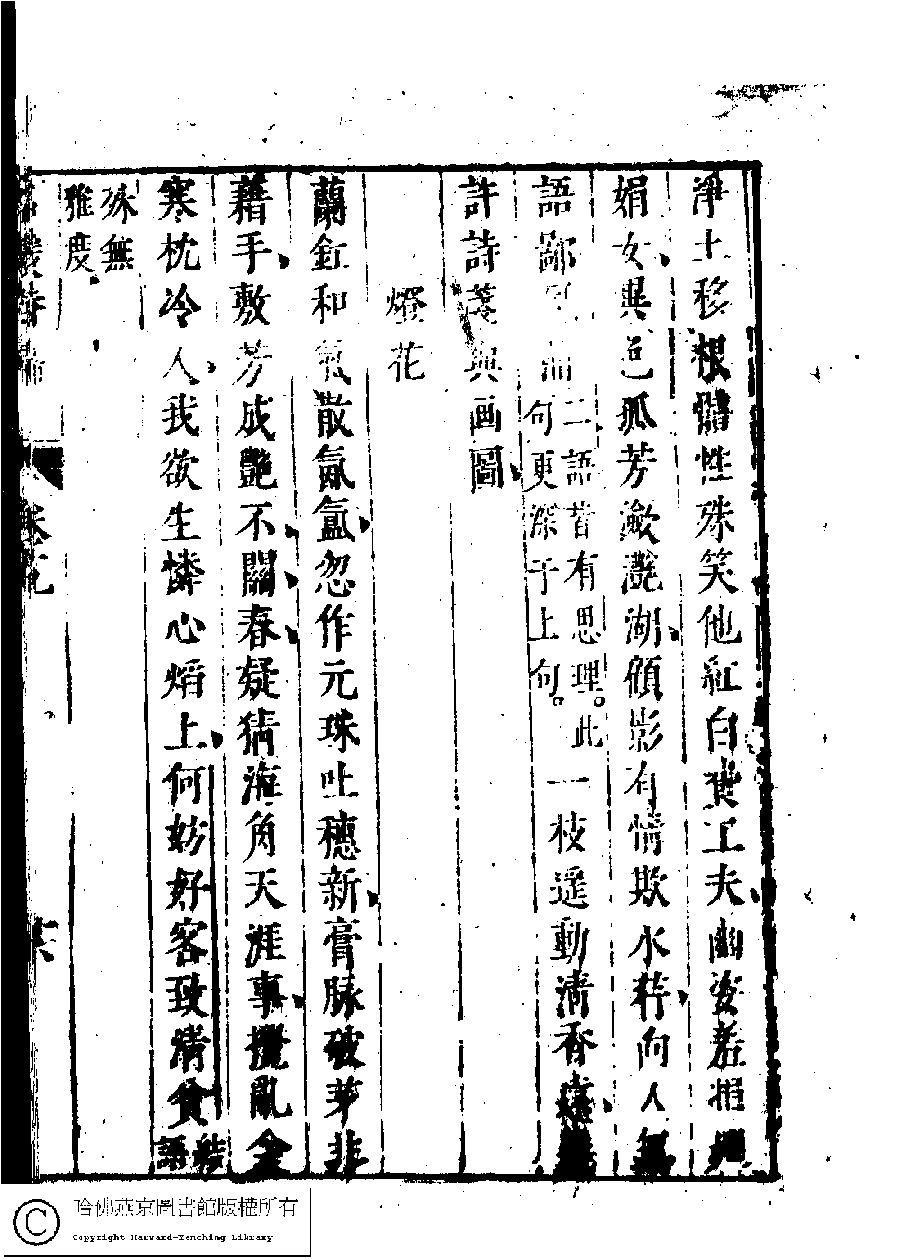 淨土移根體性殊笑他紅白費工夫幽姿羞捐
娟女異色孤芳瀲灔湖顧影有情欺水荇向人無
語鄙 二語皆有思理。此句更深于上句。一枝遥動清香遠
許詩箋與画圖
燈花
蘭釭和氣散氤氳忽作元珠吐穗新膏脉破芽非
藉手敷芳成艷不關春疑猜海角天涯事攪亂金
寒枕冷人我欲生憐心焰上何妨好客致清貧結語
殊無雅度
哈佛燕京圖書館版權所有
Copyright Harvard-Yenching Library